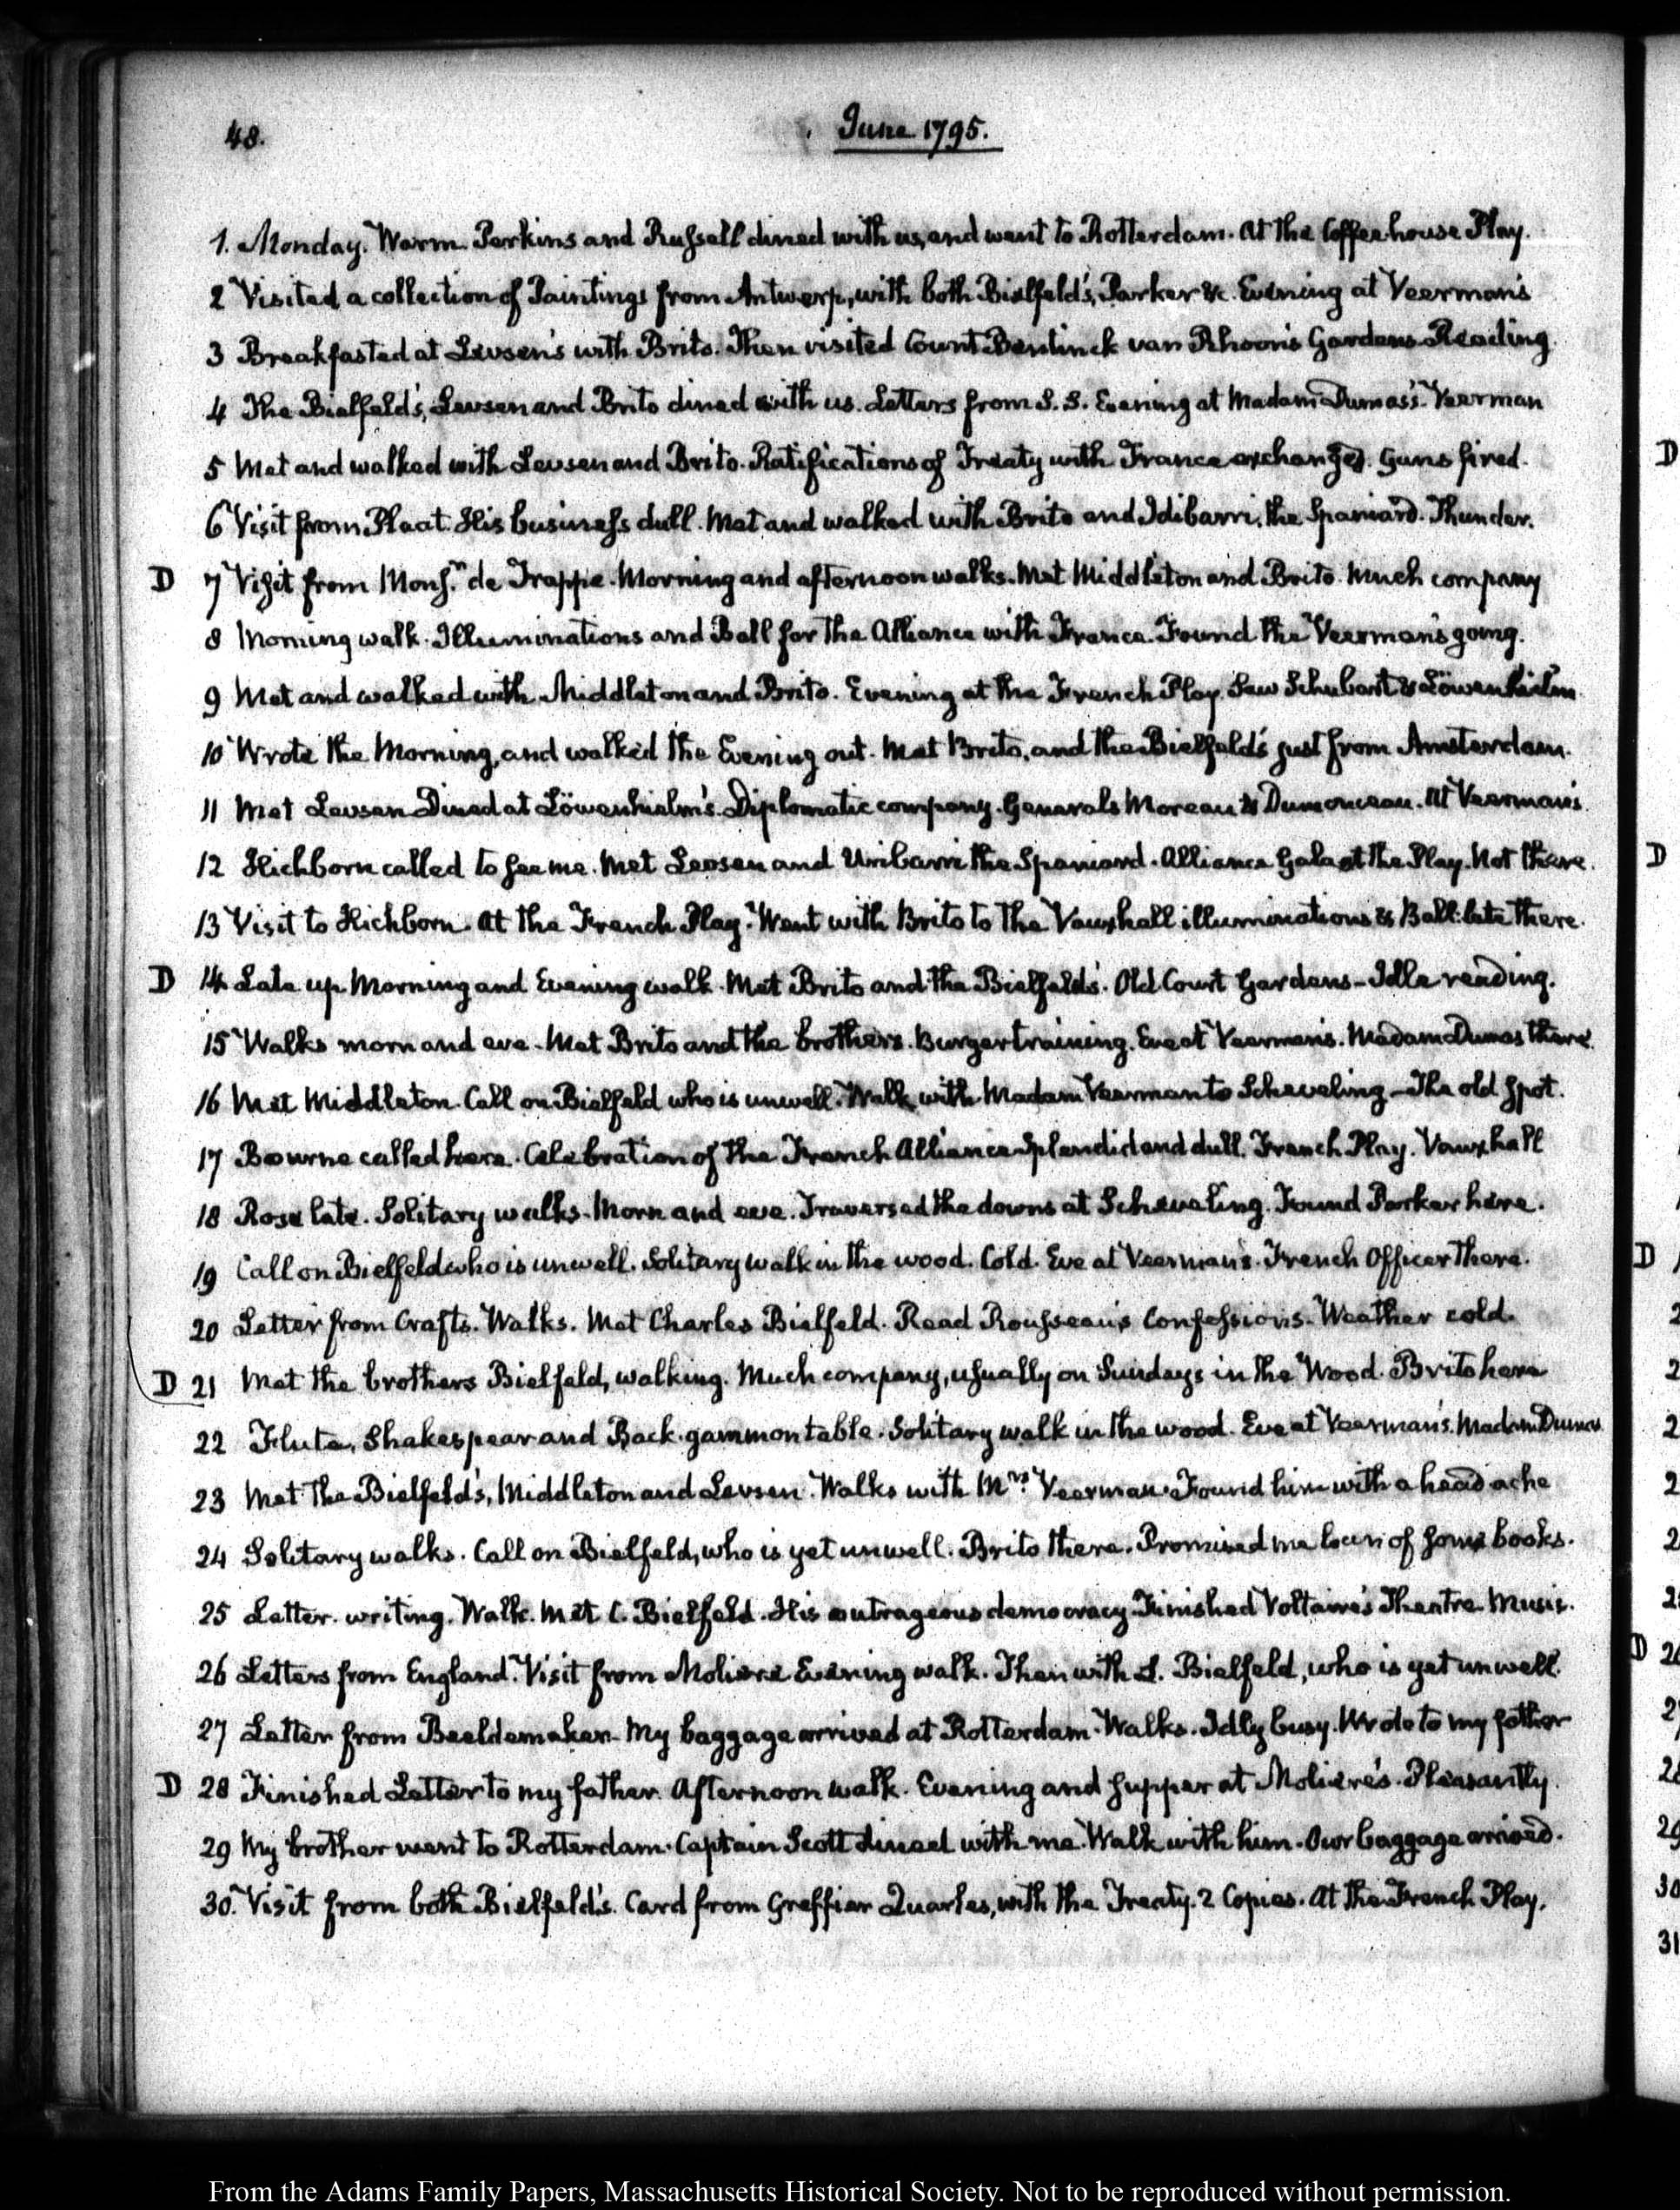 48.
June 1795.
1. Monday. Warm. Perkins and Russell dined with us, and went to Rotterdam. At the Coffee-house Play.
2 Visited a collection of Paintings from Antwerp, with both Bielfeld's, Parker &c. Evening at Veerman's
3 Breakfasted at Levsen's with Brito. Then visited Count Bentinck van Rhoon's Gardens. Reading
4 The Bielfeld's, Levsen and Brito dined with us. Letters from S. S. Evening at Madam Dumas's. Veerman
5 Met and walked with Levsen and Brito. Ratifications of Treaty with France exchanged. Guns fired.
6 Visit from Plaat. His business dull. Met and walked with Brito and Idibarri, the Spaniard. Thunder.
D 7 Visit from Monsr. de Trappe. Morning and afternoon walks. Met Middleton and Brito. Much company
8 Morning walk. Illuminations and Ball for the Alliance with France. Found the Veerman's going.
9 Met and walked with Middleton and Brito. Evening at the French Play. Saw Schubart & Löwenhielm
10 Wrote the Morning, and walked the Evening out. Met Brito, and the Bielfeld's just from Amsterdam.
11 Met Levsen Dined at Löwenhielm's. Diplomatic company. Generals Moreau & Dumonceau. At Veerman's
12 Hichborn called to see me. Met Levsen and Uribarri the Spaniard. Alliance Gala at the Play. Not there.
13 Visit to Hichborn. At the French Play. Went with Brito to the Vauxhall illuminations & Ball: late there.
D 14 Late up. Morning and Evening walk. Met Brito and the Bielfeld's. Old Court Gardens - Idle reading.
15 Walks morn and eve. Met Brito and the brothers. Burger training. Eve at Veerman's. Madam Dumas there.
16 Met Middleton. Call on Bielfeld who is unwell. Walk with Madam Veerman to Scheveling - The old spot.
17 Bourne called here. Celebration of the French Alliance splendid and dull. French Play. Vauxhall
18 Rose late. Solitary walks. Morn and eve. Traversed the downs at Scheveling. Found Parker here.
19 Call on Bielfeld who is unwell. Solitary walk in the wood. Cold. Eve at Veerman's. French Officer there.
20 Letter from Crafts. Walks. Met Charles Bielfeld. Read Rousseau's Confessions. Weather cold.
D 21 Met the brothers Bielfeld, walking. Much company, usually on Sundays in the Wood. Brito here
22 Flute, Shakespear and Back-gammon table. Solitary walk in the wood. Eve at Veerman's. Madam Dumas
23 Met the Bielfeld's, Middleton and Levsen. Walks with Mrs. Veerman. Found him with a head ache
24 Solitary walks. Call on Bielfeld, who is yet unwell. Brito there. Promised me loan of some books.
25 Letter-writing. Walk. Met C. Bielfeld. His outrageous democracy. Finished Voltaire's Theatre. Music.
26 Letters from England. Visit from Moliere. Evening walk. Then with L. Bielfeld, who is yet unwell.
27 Letter from Beeldemaker. My baggage arrived at Rotterdam. Walks. Idly busy. Wrote to my father
D 28 Finished Letter to my father. Afternoon walk. Evening and supper at Moliere's. Pleasantly.
29 My brother went to Rotterdam. Captain Scott dined with me. Walk with him. Our baggage arrived.
30. Visit from both Bielfeld's. Card from Greffier Quarles, with the Treaty. 2 Copies. At the French Play.
From the Adams Family Papers, Massachusetts Historical Society. Not to be reproduced without permission.